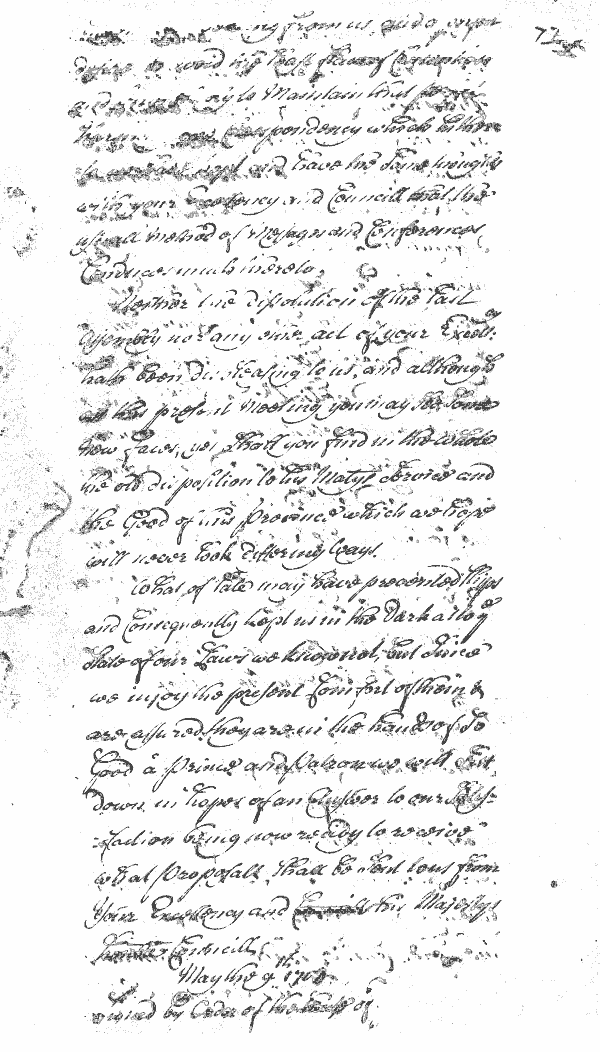 72
ing from us and a
desire to avoid the least
to Maintain that
Correspondency which hitherto
kept and have the same thoughts
with your Excellency and Councill that the
usuall method of Messages and Conferences
Conduces much thereto.
Neither the dissolution of the last
Assembly nor any other act of your Excellcy:
hath been displeasing to us, and although
at this present Meeting you may see some
new faces, yet shall you find in the whole
the old disposition to his Matys service and
the Good of this Province which we hope
will never look differing ways
What of late may have prevented ships
and Consequently kept us in the Dark as to ye
state of our Laws we know not, but since
we injoy the present Comfort of them &
are assured they are in the hands of So
Good a Prince and Patron we will Sit
down in hopes of an Answer to our Satis-
-faction being now ready to receive
what Proposalls shall be Sent to us from
Your Excellency and his Majestys
Councill
May the 9th
Signed by Order of the of